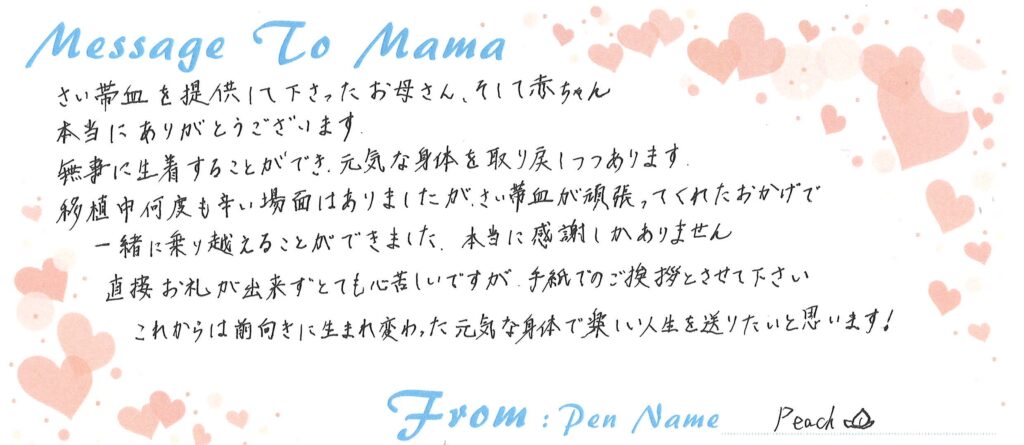 Message To Mama
さい帯血を提供して下さったお母さん、そして赤ちゃん
本当にありがとうございます.
無事に生着することができ、元気な身体を取り戻しつつあります.
移植中何度も辛い場面はありましたが、さい帯血が頑張ってくれたおかげで
一緒に乗り越えることができました. 本当に感謝しかありません
直接お礼が出来ずとても心苦しいですが、手紙でのご挨拶とさせて下さい
これからは前向きに生まれ変わった元気な身体で楽しい人生を送りたいと思います!
From : Pen Name Peach